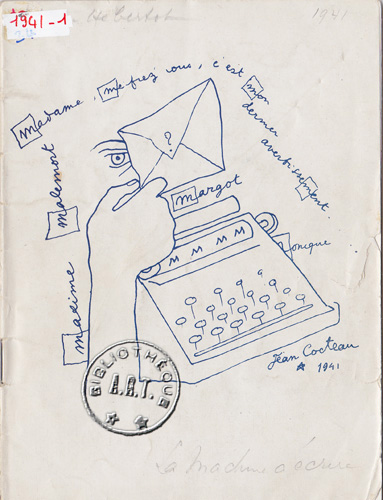 1941-1
1941
madame, méfiez vous, c'est mon
dernier avertissement.
malemort
maxime
?
margot
M M M M
monique
Jean Cocteau
★ 1941
BIBLIOTHÈQUE
A.R.T.
La Machine à écrire